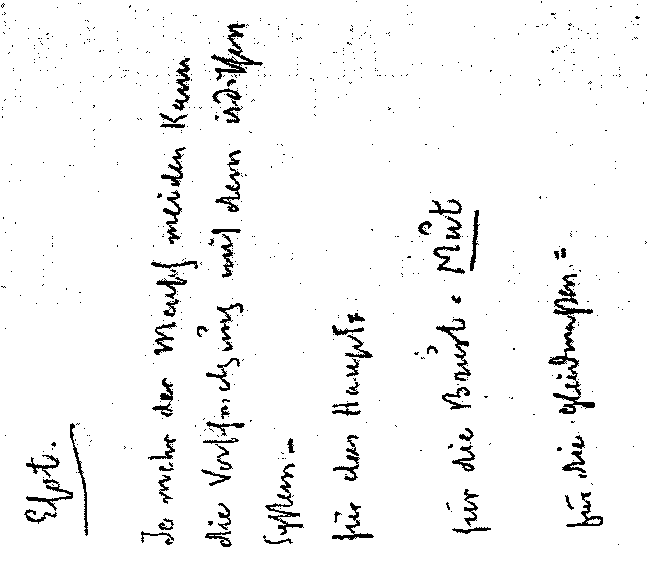 Esot.
Je mehr der Mensch meiden kann
die mit dem irdischen
System -
für das Haupt:
für die Brust. Mut
für die Gliedmaßen =